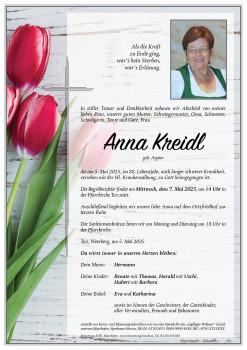 Als die Kraft
zu Ende ging,
war's kein Sterben,
war's Erlösung.
In stiller Trauer und Dankbarkeit nehmen wir Abschied von meiner
lieben Frau, unserer guten Mutter, Schwiegermutter, Oma, Schwester,
Schwägerin, Tante und Gote, Frau
Anna Kreidl
geb. Aigner
die am 5. Mai 2025, im 88. Lebensjahr, nach langer schwerer Krankheit,
versehen mit der Hl. Krankensalbung, zu Gott heimgegangen ist.
Die Begräbnisfeier findet am Mittwoch, dem 7. Mai 2025, um 14 Uhr in
der Pfarrkirche Tux statt.
Anschließend begleiten wir unsere liebe Anna auf den Ortsfriedhof zur
letzten Ruhe.
Die Seelenrosenkränze beten wir am Montag und Dienstag um 19 Uhr in
der Pfarrkirche.
Tux, am 5. Mai 2025
Du wirst immer in unseren Herzen bleiben:
Dein Mann: Hermann
Deine Kinder: Renate mit Thomas, Harald mit Uschi,
Hubert mit Barbara
Deine Enkel: Eva und Katharina
sowie im Namen der Geschwister, der Gotenkinder,
aller Verwandten, Freunde und Bekannten.